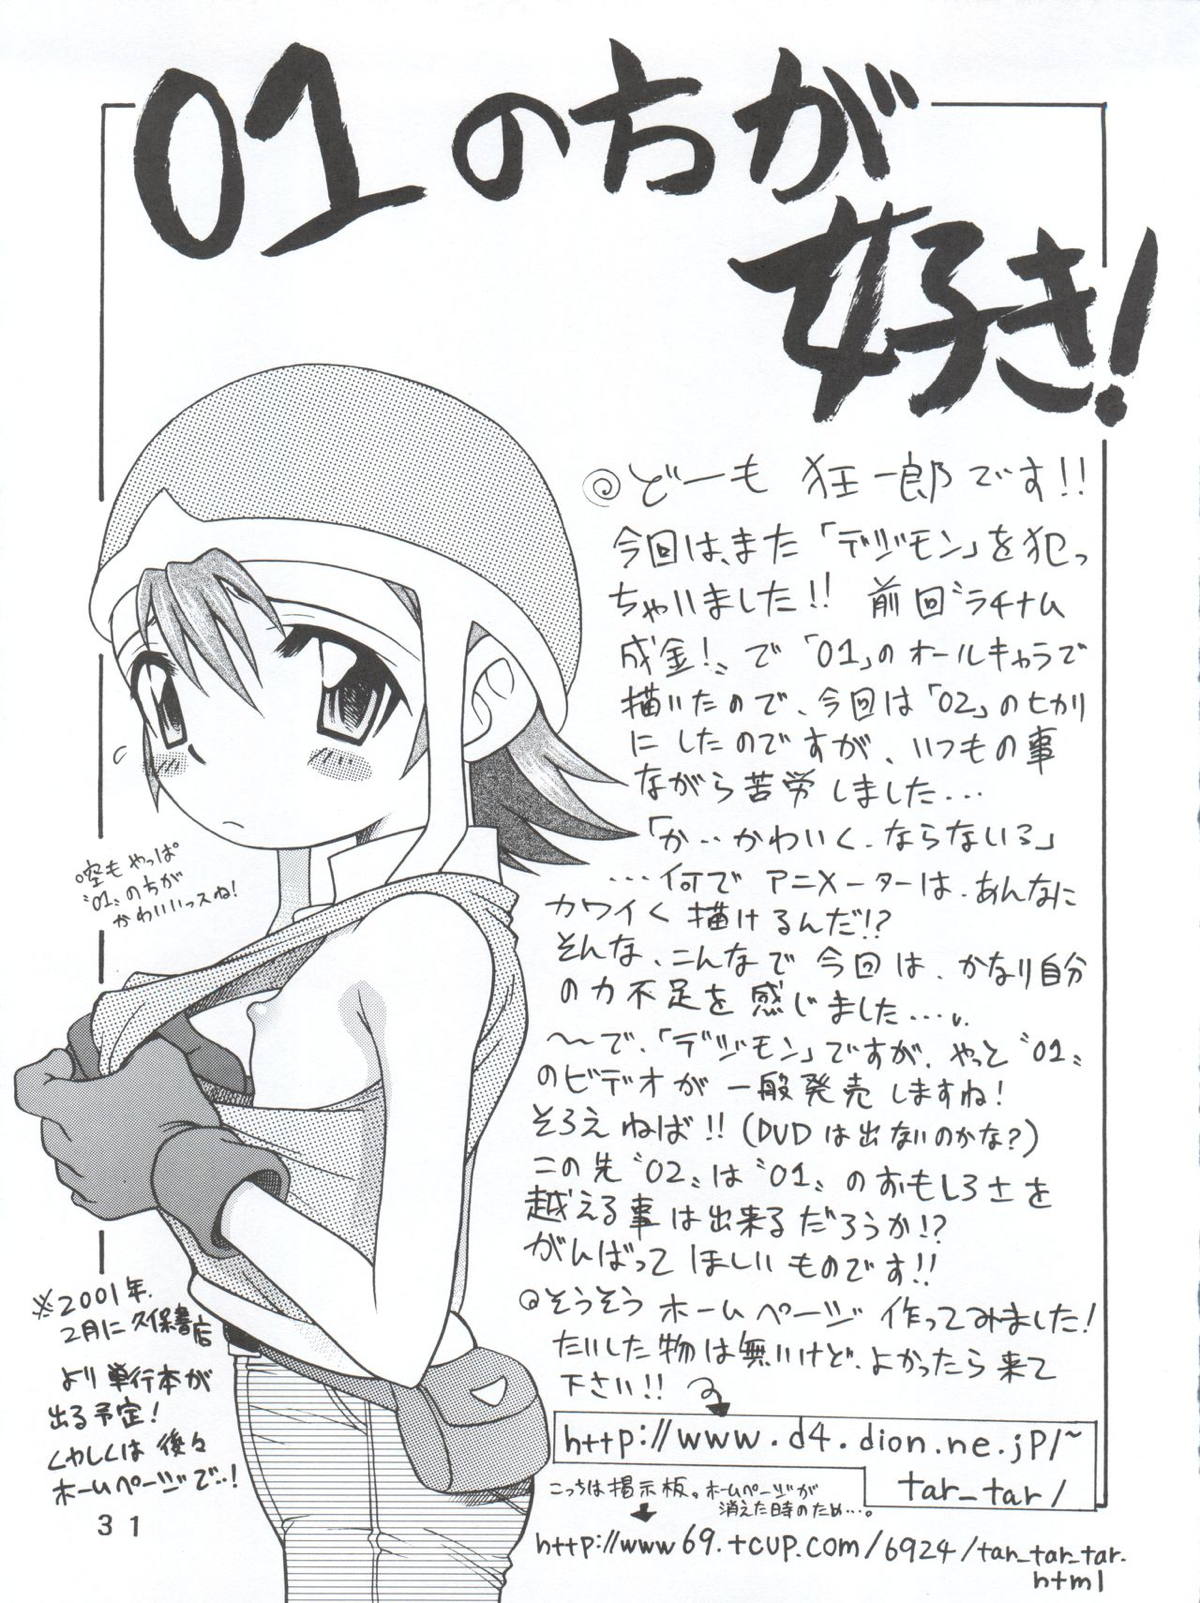 01 の方が
好き!
◎どーも 狂一郎です!!
今回は、また「デジモン」を犯っ
ちゃいました!! 前回〝ラチナム
成金!〟で「01」のオールキャラで
描いたので、今回は「02」のヒカリ
にしたのですが、いつもの事
ながら苦労しました...
「か‥かわいく、ならないろ」
...何で アニメーターは、あんなに
カワイく 描けるんだ!?
そんな、こんなで 今回は、かなり自分
の力不足を 感じました...
〜で、「デジモン」ですが、やっと〝01〟
のビデオが 一般発売しますね!
そろえねば!! (DVDは出ないのかな?)
この先〝02〟は〝01〟のおもしろさを
越える事は出来るだろうか!?
がんばって ほしい ものです!!
◎そうそう ホームページ 作ってみました!
たいした物は無いけど、よかったら来て
下さい!!
http://www.d4.dion.ne.jp/~
tar_tar/
こっちは掲示板。ホームページが
消えた時のため...。
http://www69.tcup.com/6924/tar_tar_tar.
html
やっぱ
〝01〟の方が
かわいいっスね!
※2001年.
2月に 久保書店
より 単行本が
出る予定!
くやしくは 後々
ホームページで‥!
31